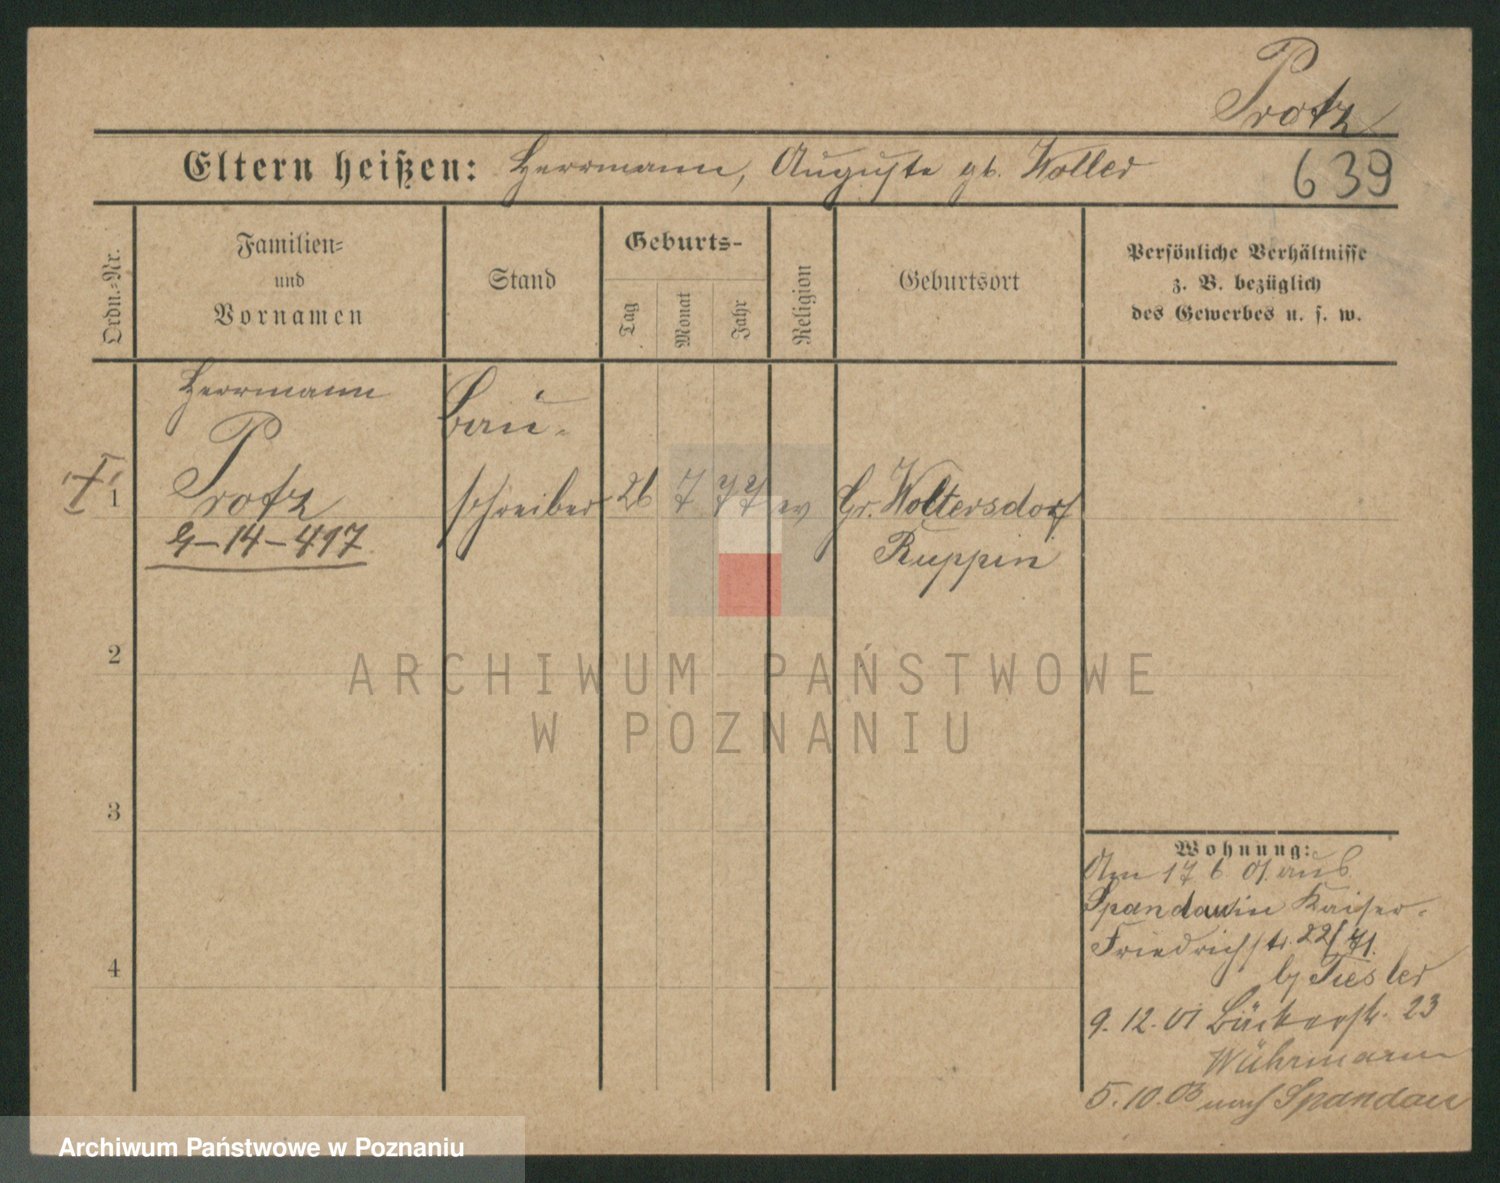 Protz
Eltern heißen: Herrmann, Auguste gb. Woller
639
Ordn.-Nr.
Familien-
und
Vornamen
Stand
Geburts-
Tag
Monat
Jahr
Religion
Geburtsort
Persönliche Verhältnisse
z. B. bezüglich
des Gewerbes u. s. w.
Herrmann
Protz
9-14-417
Bau-
schreiber
26 7 77 ev
Gr. Woltersdorf
Ruppin
1
2
3
4
ARCHIWUM PAŃSTWOWE
W POZNANIU
Wohnung:
Am 17 6 01. aus
Spandau in Kaiser-
Friedrichstr. 22/
b/ Tiesler
9. 12. 01 Bäckerstr. 23
Wührmann
5. 10. 03 nach Spandau
Archiwum Państwowe w Poznaniu